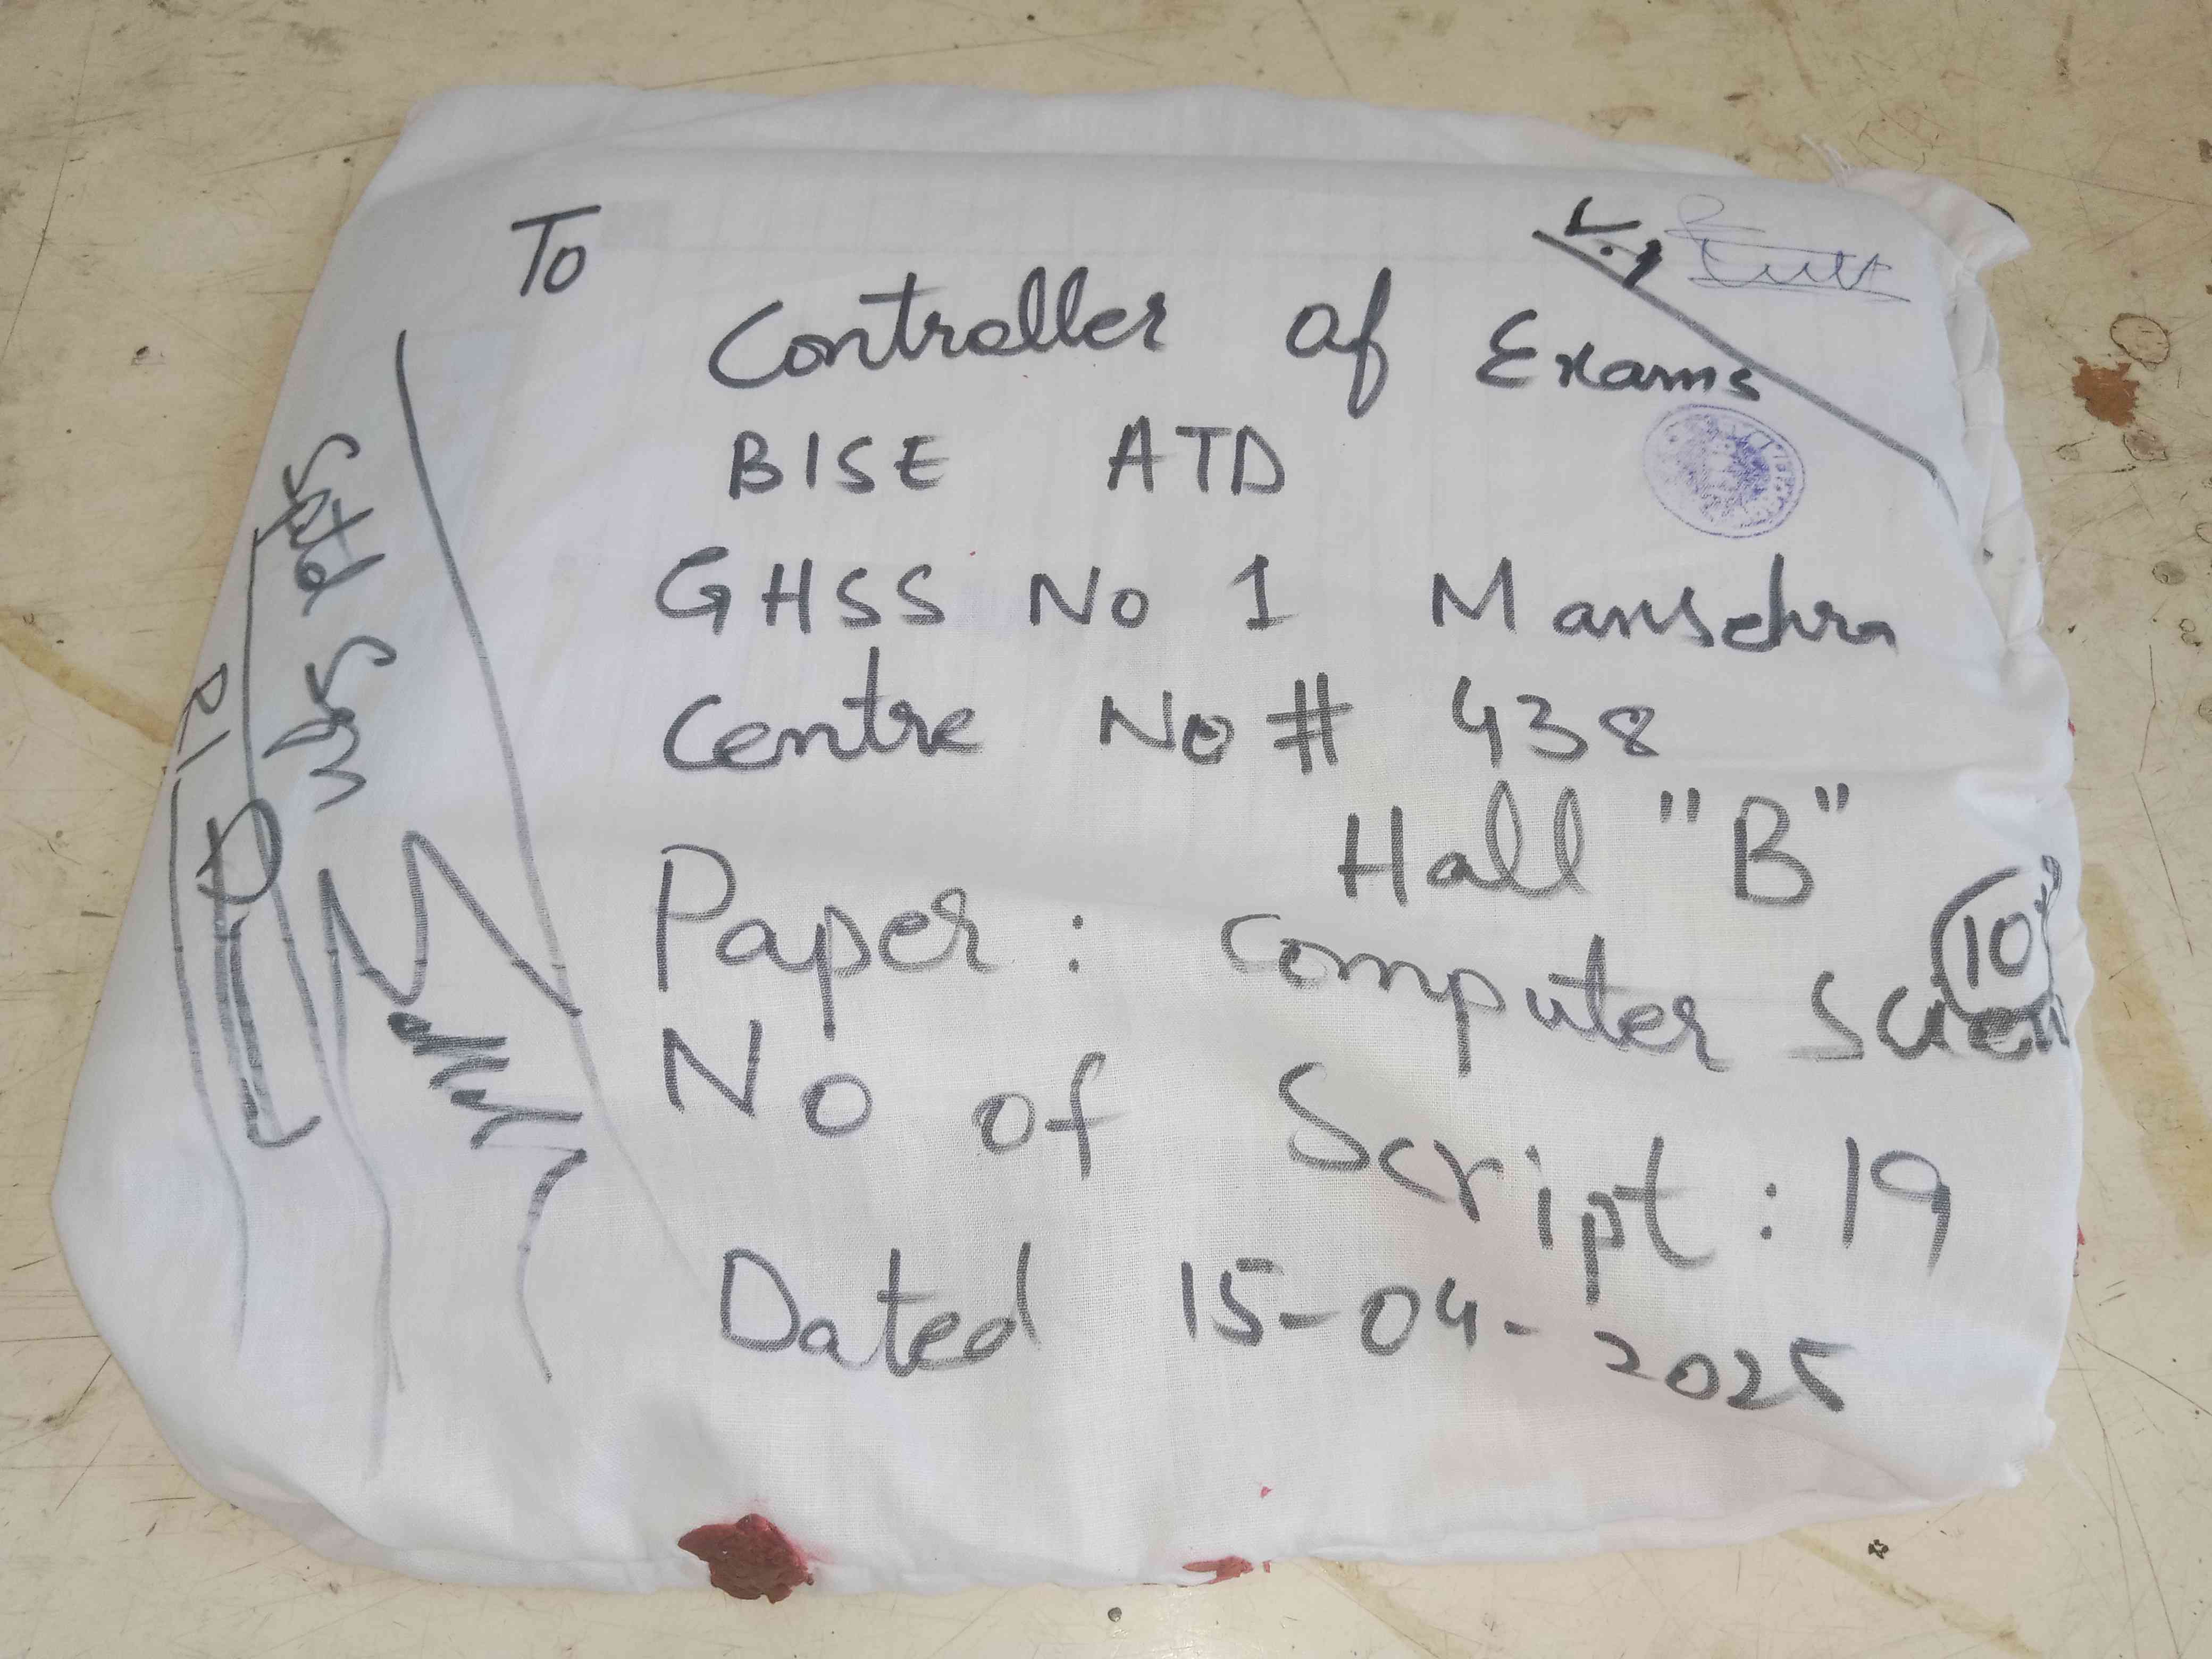 To
Controller of Exams
BISE ATD
GHSS No 1 Mansehra
Centre No # 438
Hall "B"
Paper: Computer Scien
10
No of Script: 19
Dated 15-04-2025